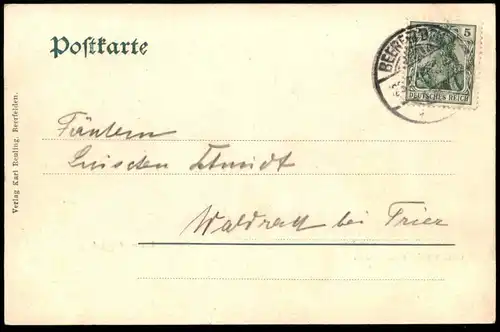 Postkarte
5
DEUTSCHES REICH
Fräulein
Luischen Schmidt
Waldrach bei Trier
Verlag Karl Reuling, Beerfelden.